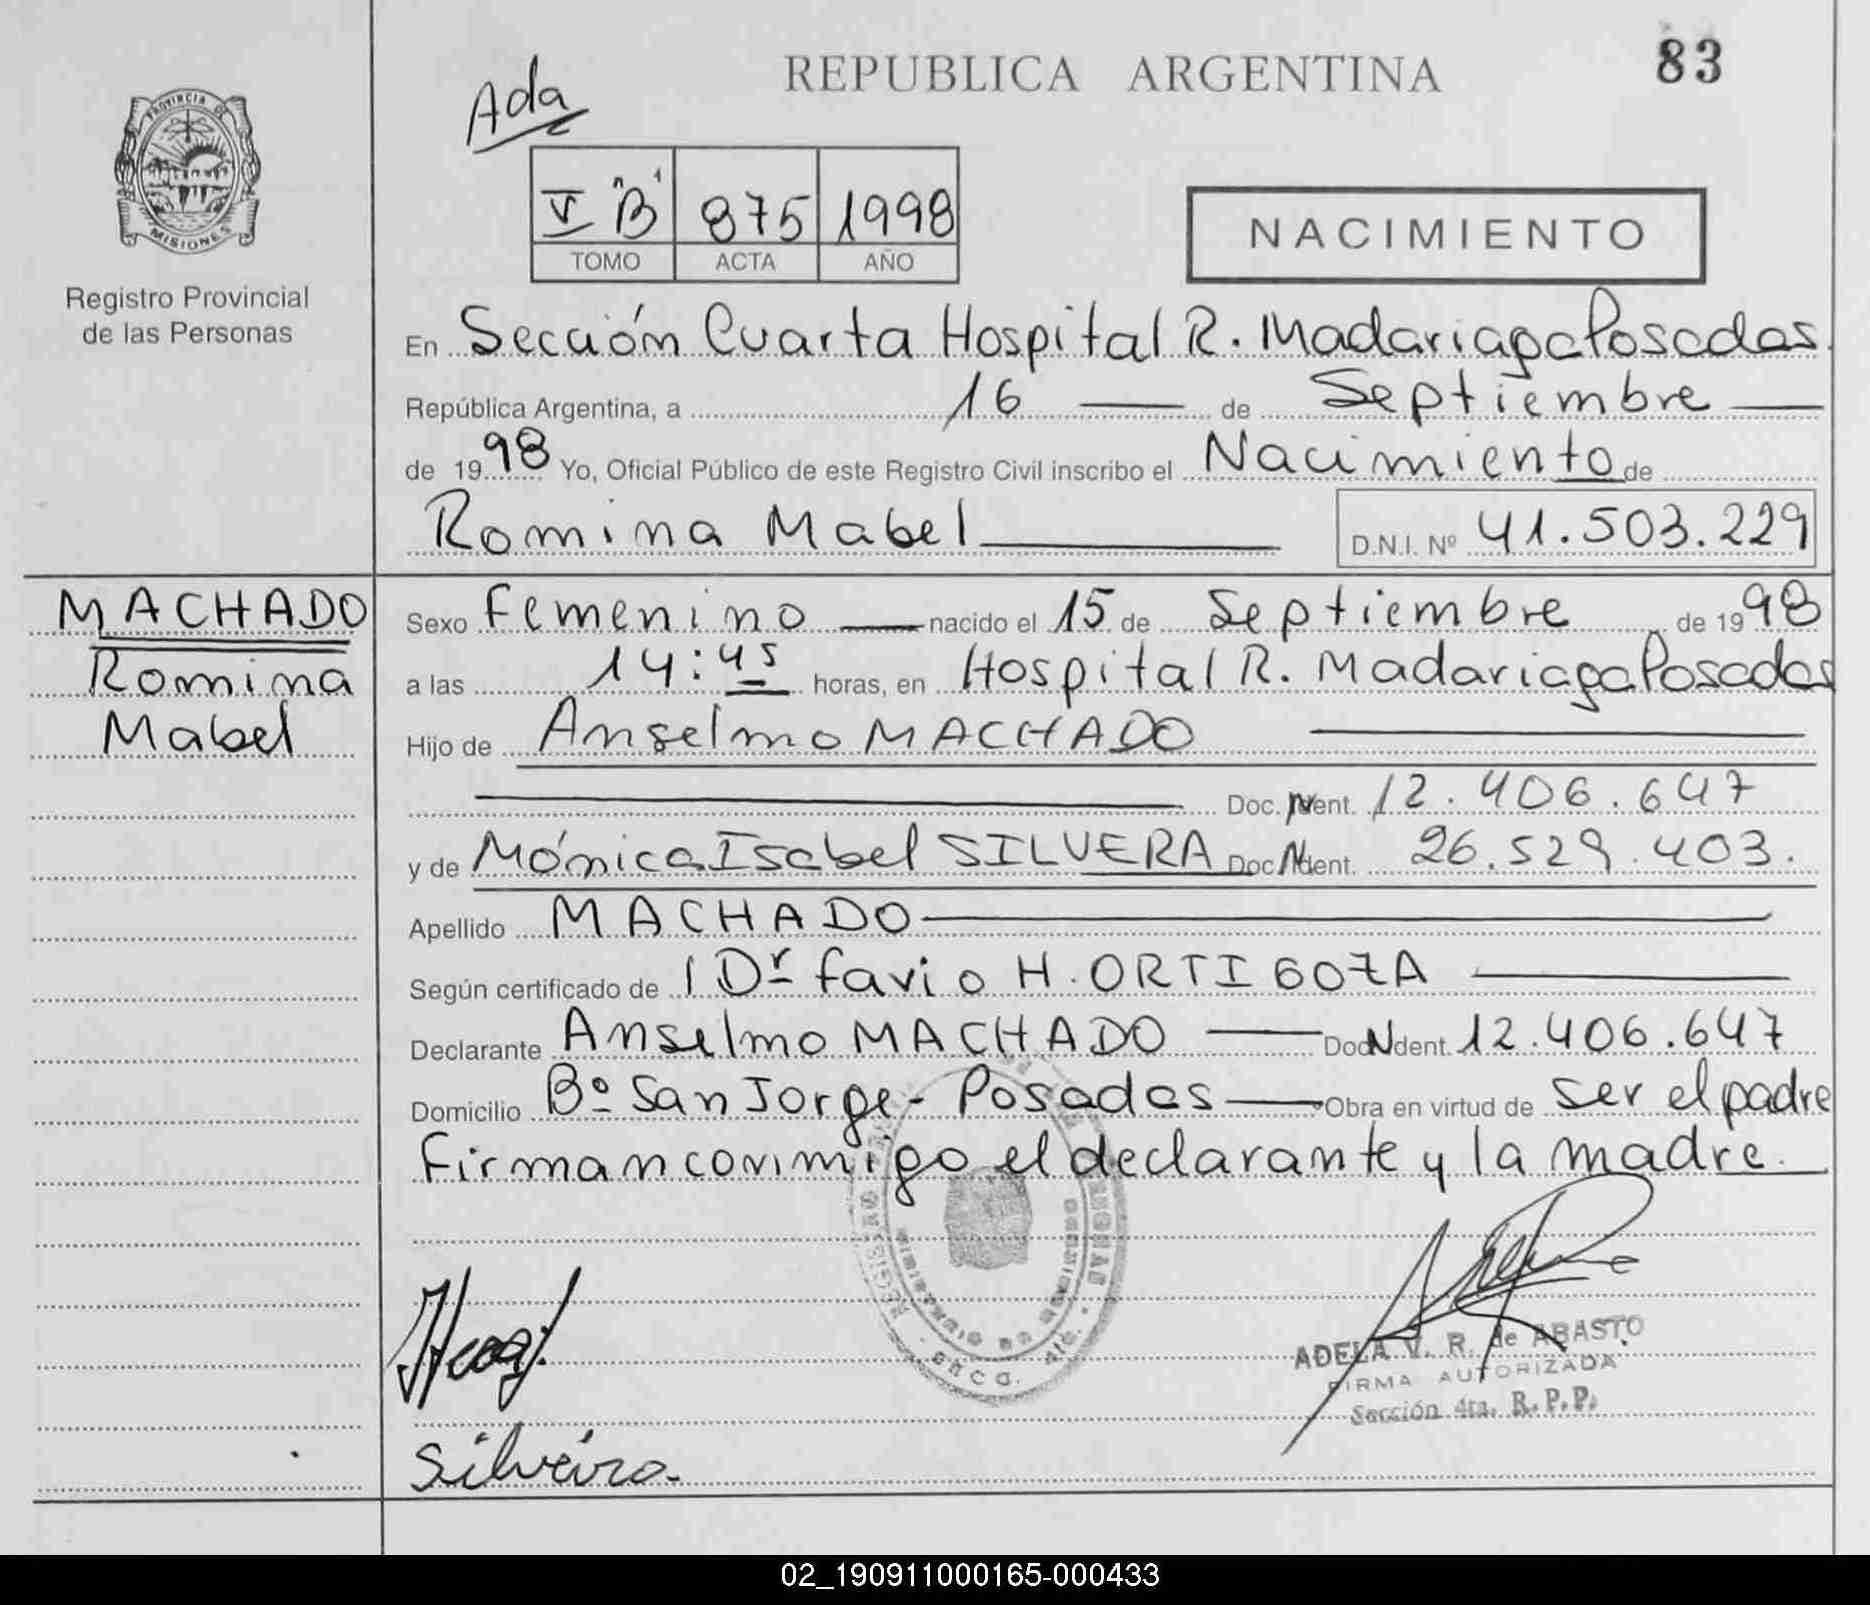 83
REPUBLICA ARGENTINA
Ada
PROVINCIA DE
MISIONES
V "B" 875 1998
TOMO ACTA AÑO
NACIMIENTO
Registro Provincial
de las Personas
En Sección Cuarta Hospital R. Madariaga Posadas
República Argentina, a 16 de Septiembre
de 1998 Yo, Oficial Público de este Registro Civil inscribo el Nacimiento de
Romina Mabel D.N.I. Nº 41.503.229
MACHADO
Romina
Mabel
Sexo Femenino nacido el 15 de Septiembre de 1998
a las 14:45 horas, en Hospital R. Madariaga Posadas
Hijo de Anselmo MACHADO
Doc. N Ident. 12.406.647
y de Mónica Isabel SILVERA Doc. N Ident. 26.529.403.
Apellido MACHADO
Según certificado de l Dr Favio H. ORTIGOZA
Declarante Anselmo MACHADO Doc N Ident. 12.406.647
Domicilio Bº San Jorge - Posadas Obra en virtud de ser el padre
Firman conmigo el declarante y la madre.
Silveira.
ADELA V. R. de ABASTO
FIRMA AUTORIZADA
Sección 4ta. R.P.P.
02_190911000165-000433